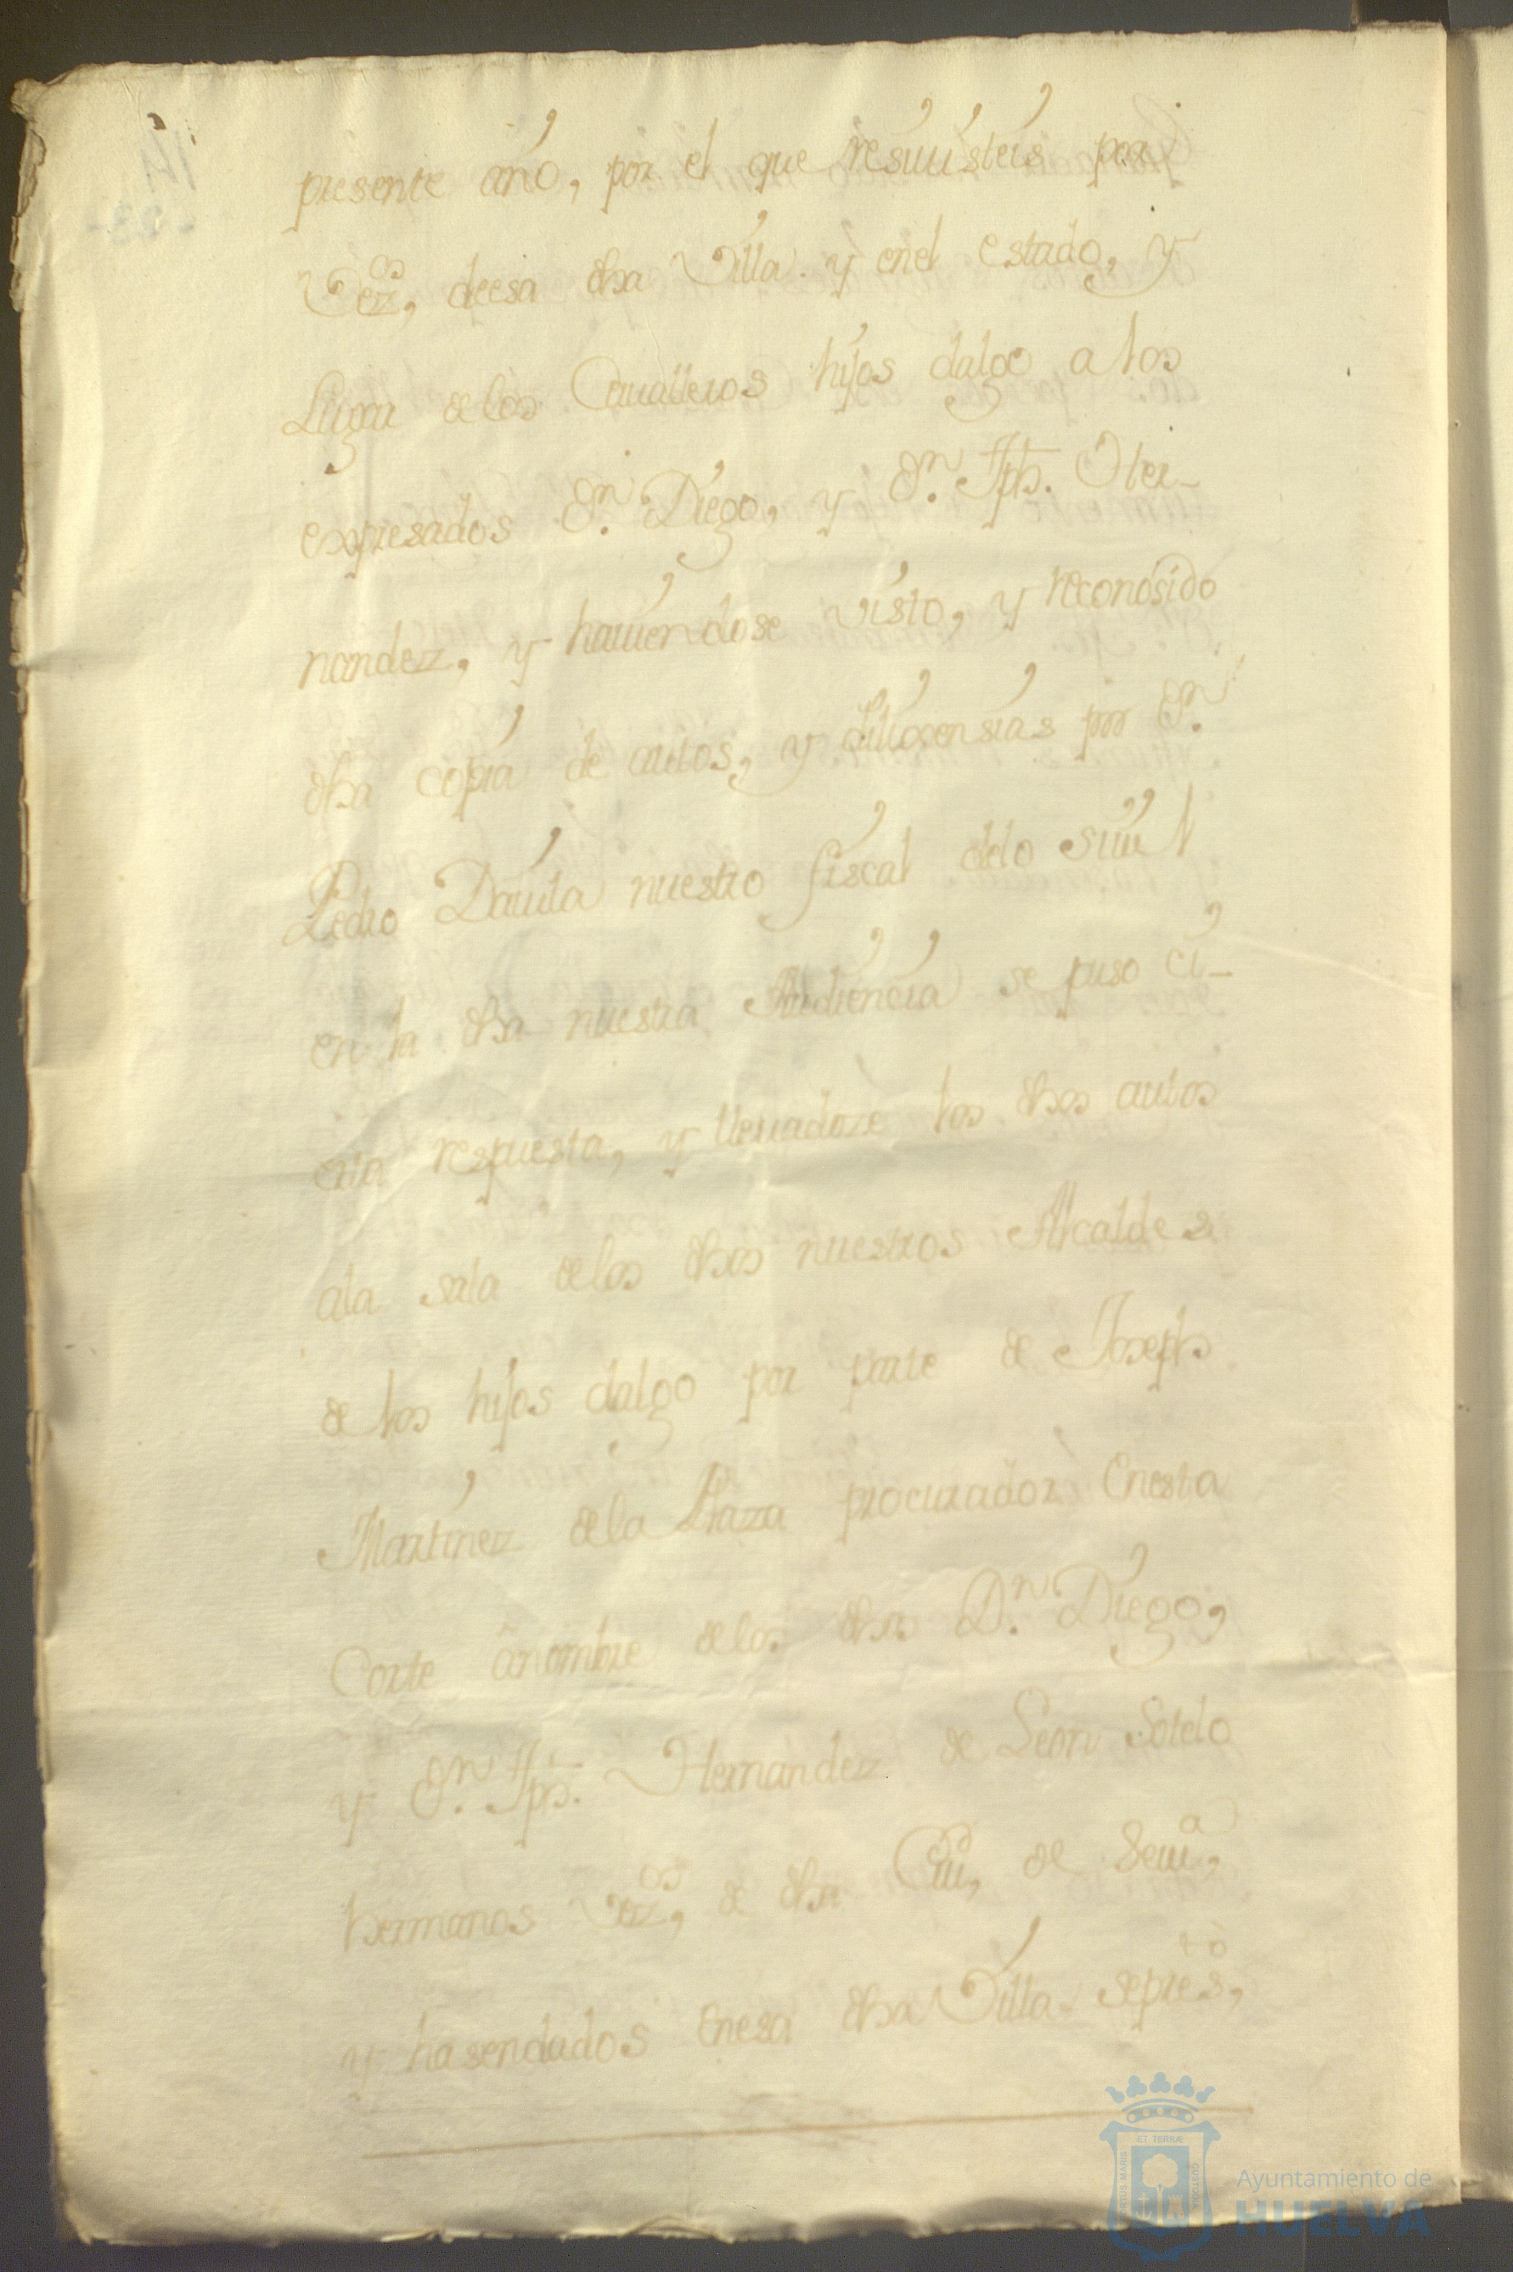 presente año, por el que resiuisteis por
Vez,os deesa dha Villa y enel estado, y
Lugar delos Caualleros hijos dalgo a los
expresados Dn. Diego, y Dn. Jph. Her-
nandez, y hauiendose visto, y reconosido
dha copia de autos, y diligensias por Dn.
Pedro Dauila nuestro fiscal delo siuil
en la dha nuestra Audiencia se puso ci-
erta respuesta, y lleuadoze los dhos autos
ala sala delos dhos nuestros Alcaldes
de los hijos dalgo por parte de Joseph
Martinez dela Plaza procurador Enesta
Corte ânombre delos dhos Dn. Diego,
y Dn. Jph. Hernandez de Leon Sotelo
hermanos vezos, de dha Ciud, de Seuia,
y hasendados Enesa dha Villa sepresto,
Ayuntamiento de
HUELVA